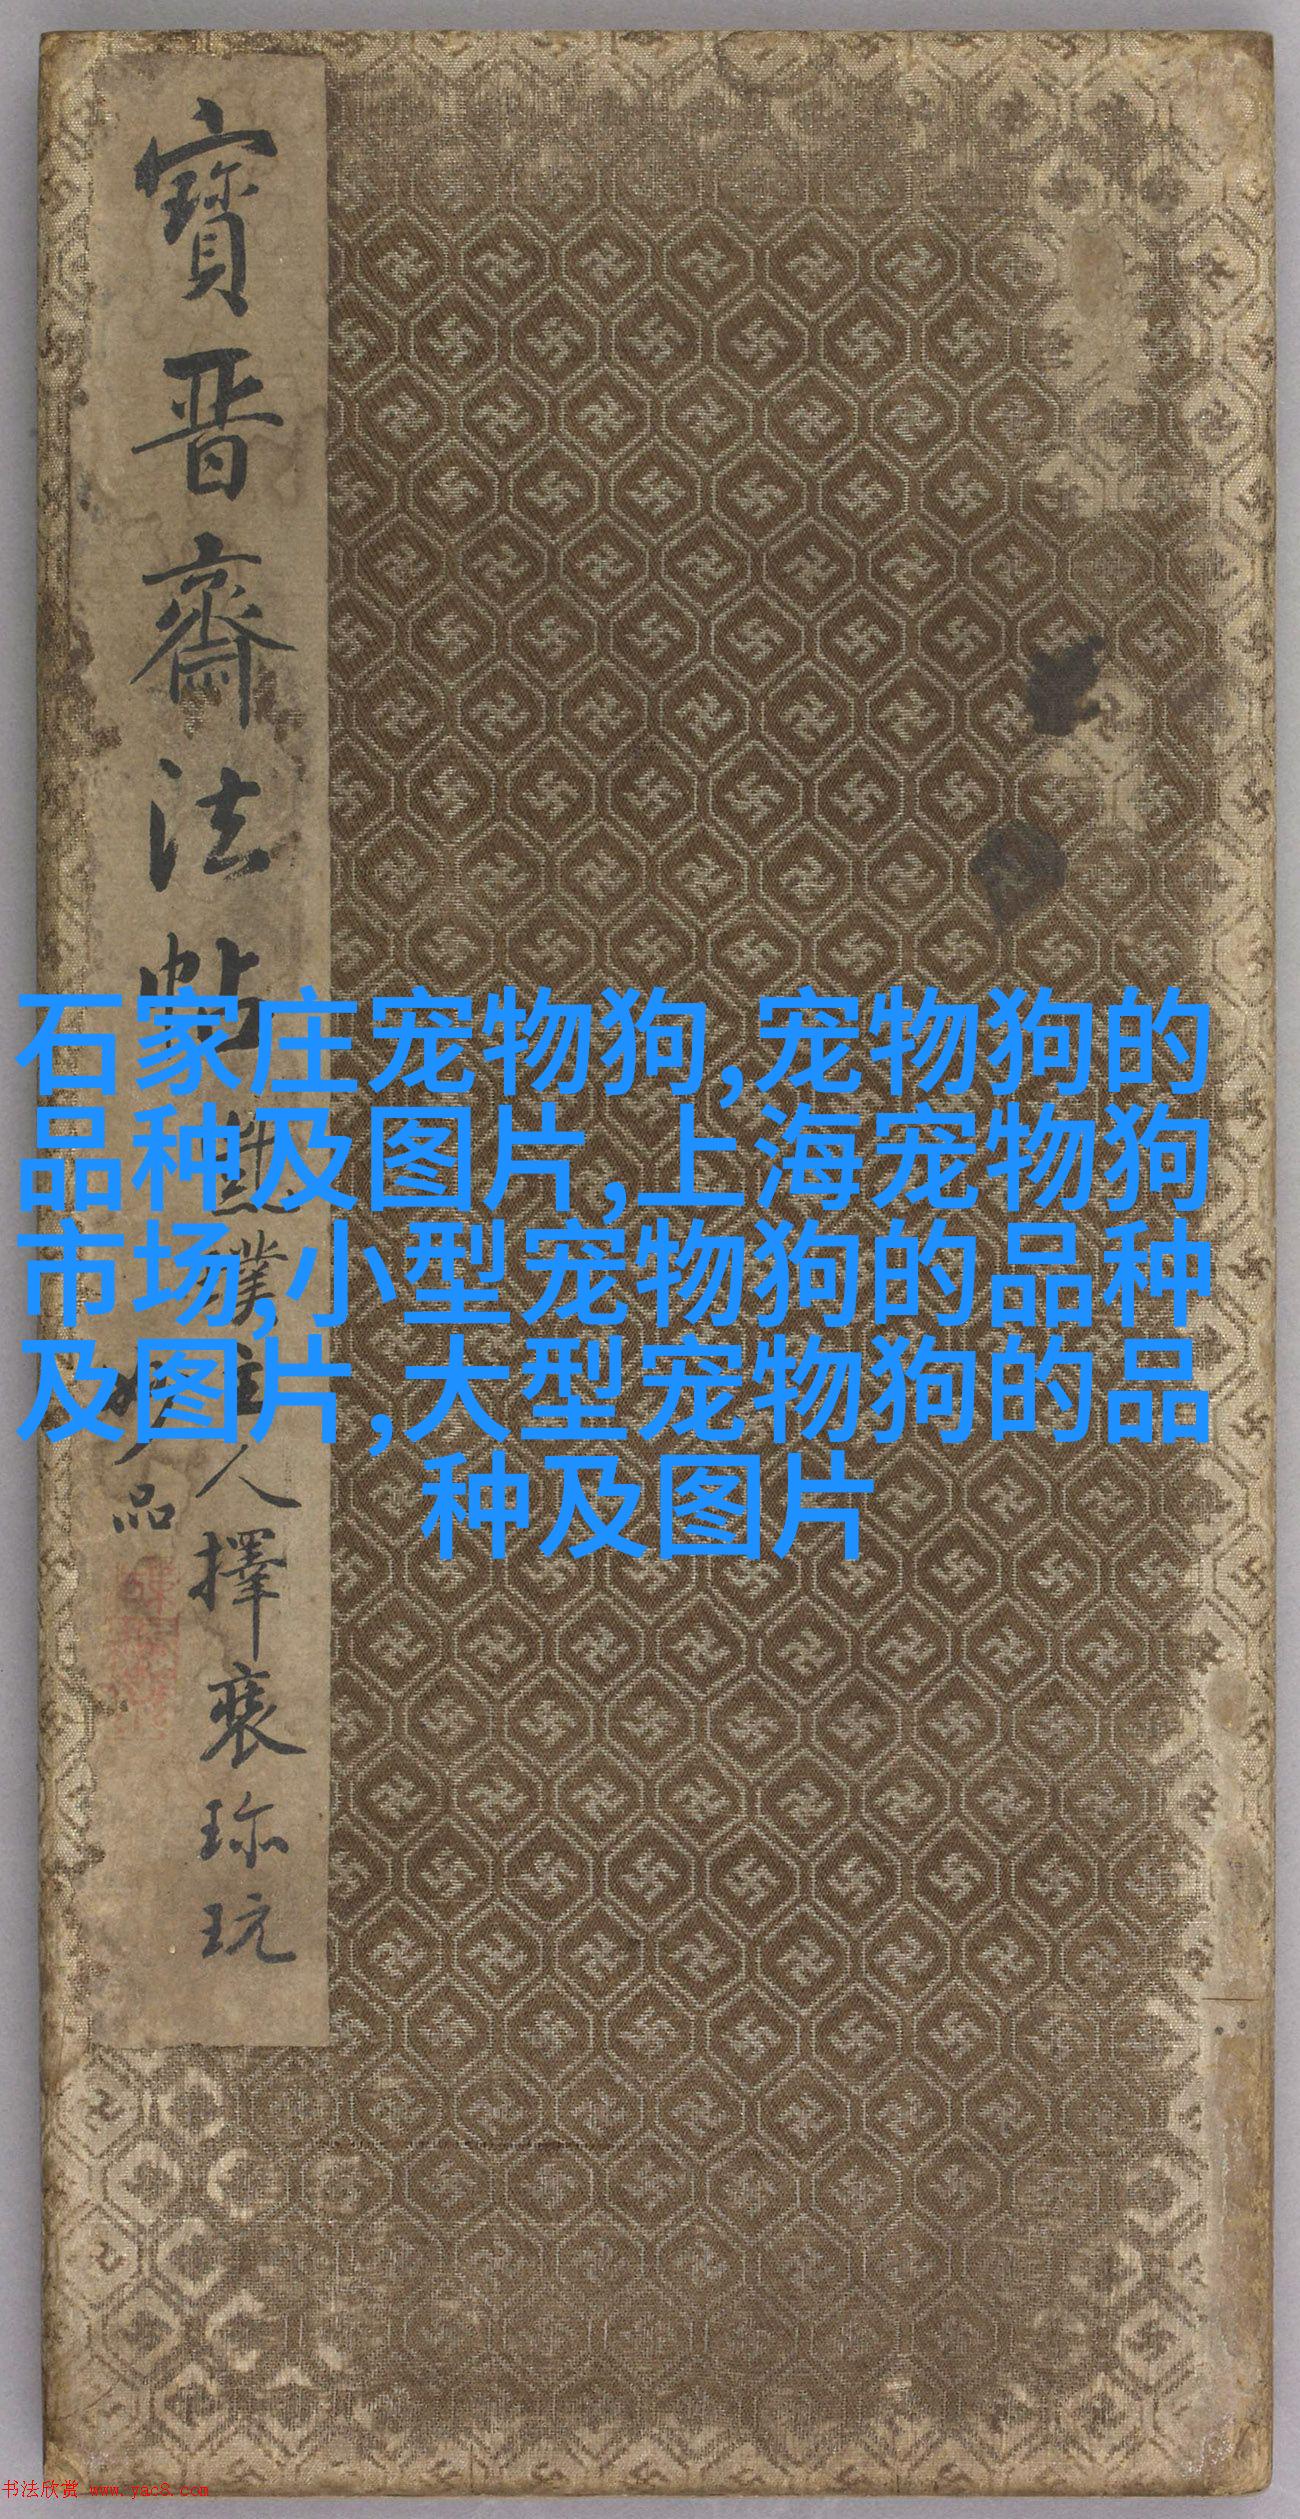 寶晉齋法帖
人擇裝珎玩
品
石家庄宠物狗,宠物狗的
品种及图片,上海宠物狗
市场,小型宠物狗的品种
及图片,大型宠物狗的品
种及图片
书法欣赏 www.yac8.com